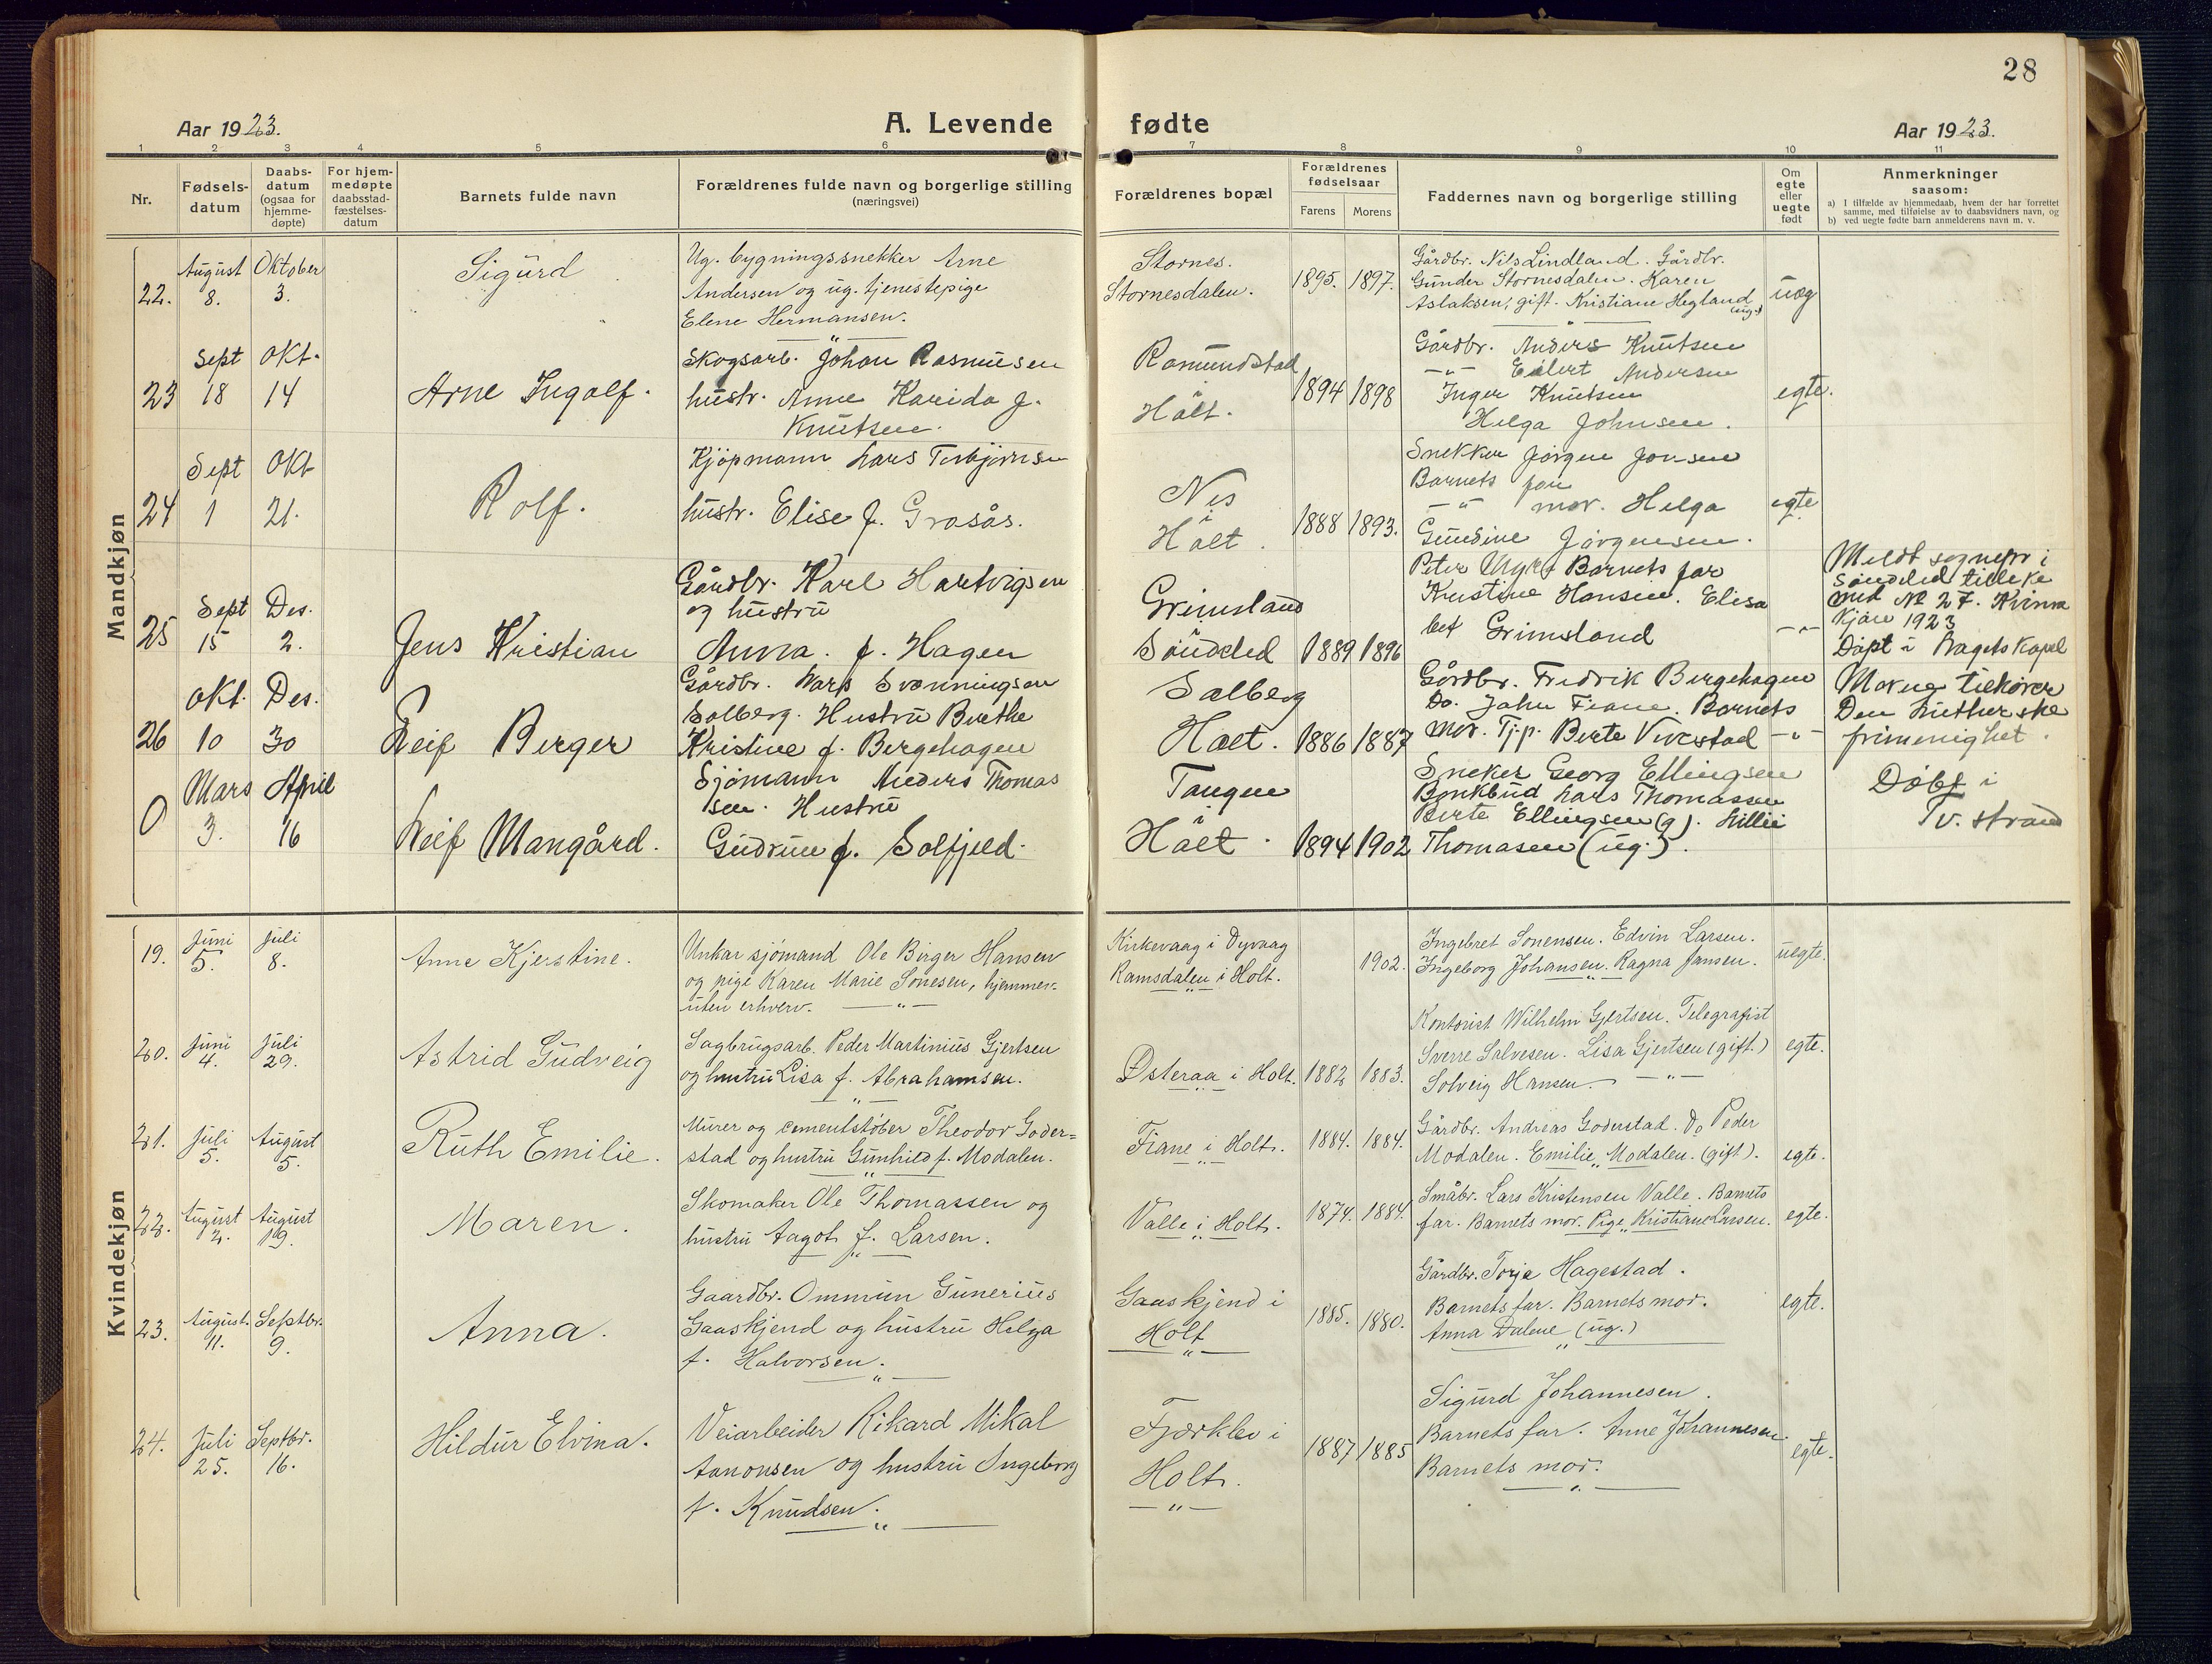 28
Aar 1923.
A. Levende fødte
Aar 1923.
1 2 3 4 5 6 7 8 9 10 11
Nr.
Fødsels-
datum
Daabs-
datum
(ogsaa for
hjemme-
døpte)
For hjem-
medøpte
daabsstad-
fæstelses-
datum
Barnets fulde navn
Forældrenes fulde navn og borgerlige stilling
(næringsvei)
Forældrenes bopæl
Forældrenes
fødselsaar
Farens Morens
Faddernes navn og borgerlige stilling
Om
egte
eller
uegte
født
Anmerkninger
saasom:
a) I tilfælde av hjemmedaab, hvem der har forrettet
samme, med tilføielse av to daabsvidners navn, og
b) ved uegte fødte barn anmelderens navn m. v.
Mandkjøn
22.
August
8.
Oktober
3.
Sigurd
Ug. bygningssnekker Arne
Andersen og ug. tjenestepige
Elene Hermansen.
Stornes.
Stornesdalen.
1895. 1897.
Gårdbr. Nils Lindland. Gårdbr.
Gunder Stornesdalen. Karen
Aslaksen, gift. Kristiane Hegland
(ug.)
uæg
23
Sept
18
Okt.
14
Arne Ingolf.
Skogsarb. Johan Rasmusen
hustr. Anne Karida f.
Knutsen.
Romundstad
i
Hålt.
1894 1898
Gårdbr. Anders Knutsen
-"- Eilert Andersen
Inger Knutsen
Helga Johnsen.
egte.
24
Sept
1
Okt
21.
Rolf.
Kjøpmann Lars Torbjørnsen
hustr. Elise f. Grasås.
Nes
i
Hålt.
1888 1893.
Snekker Jørgen Jonsen
Barnets far
-"- mor. Helga
Gundine Jørgensen.
egte
25
Sept
15
Des.
2.
Jens Kristian
Gårdbr. Karl Hartvigsen
og hustru
Anna. f. Hagen
Grimsland
i
Søndeled
1889 1896
Peter Barnets far
Kristine Hansen. Elisa
bet Grimsland
-"-
Meldt sognepr i
Søndeled tilleke
med № 27. Kvinn
kjøn 1923
Døpt i kapel
26
Okt.
10
Des.
30
Leif Berger
Gårdbr. Lars Svenningsen
Solberg. Hustru Berthe
Kristine f. Bergehagen
Solberg
Holt.
1886 1887
Gårdbr. Fredrik Bergehagen
Do. John Fiane. Barnets
mor. Tj.p. Berte Vivestad
-"-
Moren tilhører
Den lutherske
frimenighet.
0
Mars
3.
April
16
Leif Mangård.
Sjømann Anders Thomas
sen. Hustru
Gudrun f. Solfjeld.
Tangen
i
Hålt.
1894 1902
Sneker Georg Ellingsen
Bankbud Lars Thomassen
Berte Ellingsen (g). Lilli
Thomasen (ug.).
Døbt i
Tv. strand
Kvindekjøn
19.
Juni
5.
Juli
8.
Anne Kjerstine.
Unkar sjømand Ole Birger Hansen
og pige Karen Marie Sønesen, hjemmev.
uten erhverv. —"—
Kirkevaag i Dyvaag
Ramsdalen i Holt.
1902.
Ingebret Sonensen. Edvin Larsen.
Ingeborg Johansen. Ragna Jansen.
uegte.
20.
Juni
4.
Juli
29.
Astrid Gudveig
Sagbrugsarb. Peder Martinius Gjertsen
og hustru Lisa f. Abrahamsen.
Østeraa i Holt.
1882 1883.
Kontorist Wilhelm Gjertsen. Telegrafist
Sverre Salvesen. Lisa Gjertsen (gift.)
Solveig Hansen. —"—
egte.
21.
Juli
5.
August
5.
Ruth Emilie.
Murer og cementstøber Theodor Goder=
stad og hustru Gunhild f. Modalen.
Fiane i Holt.
1884. 1884.
Gårdbr. Andreas Goderstad. Do Peder
Modalen. Emilie Modalen. (gift).
egte.
22.
August
2.
August
19.
Maren.
Skomaker Ole Thomassen og
hustru Aagot f. Larsen.
Valle i Holt.
1874. 1884.
Småbr. Lars Kristensen Valle. Barnets
far. Barnets mor. Pige Kristiane Larsen.
egte.
23.
August.
11.
Septbr.
9.
Anna.
Gaardbr. Ommun Gunerius
Gaaskjend og hustru Helga
f. Halvorsen.
Gaaskjend i
Holt
1885. 1880.
Gårdbr. Torje Hagestad.
Barnets far. Barnets mor.
Anna Dalene (ug.)
egte.
24.
Juli
25.
Septbr.
16.
Hildur Elvina.
Veiarbeider Rikard Mikal
Aanonsen og hustru Ingeborg
f. Knudsen.
Fjærklev i
Holt.
1887 1885
Sigurd Johannesen.
Barnets far. Anne Johannesen.
Barnets mor.
egte.